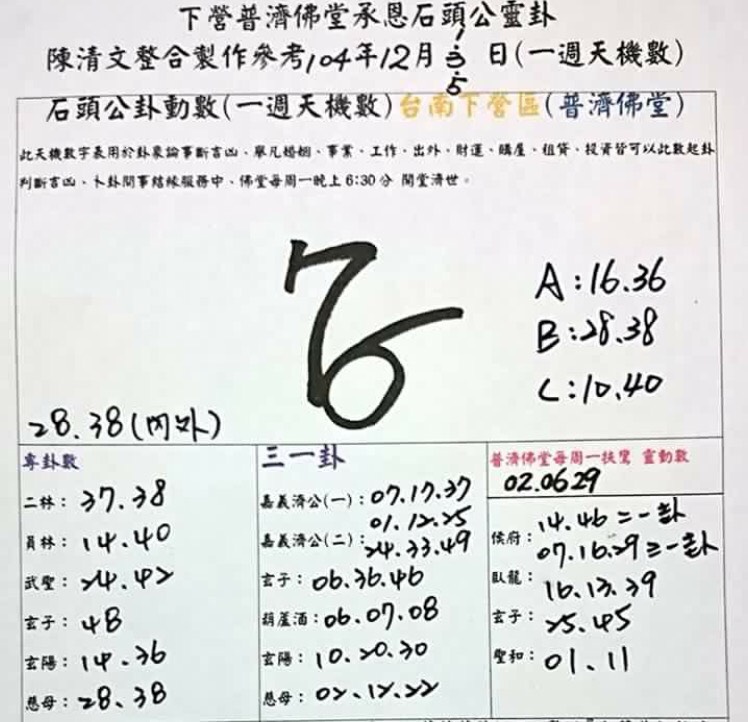 下營普濟佛堂承恩石頭公靈卦
陳清文整合製作參考104年12月1.3.5日(一週天機數)
石頭公卦動數(一週天機數)台南下營區(普濟佛堂)
此天機數字表用於卦象論事斷吉凶、舉凡婚姻、事業、工作、出外、財運、購屋、租貸、投資皆可以此數起卦
判斷吉凶、卜卦問事結緣服務中、佛堂每周一晚上6:30分 開堂濟世。
A:16.36
B:28.38
C:10.40
28.38(內外)
專卦數
二林：37.38
員林：14.40
武聖：24.42
玄子：48
玄陽：14.36
慈母：28.38
三一卦
嘉義濟公(一)：07.17.37
嘉義濟公(二)：01.12.25
24.33.49
玄子：06.36.46
葫蘆酒：06.07.08
玄陽：10.20.30
慈母：02.12.22
普濟佛堂每周一扶鸞 靈動數
02.0629
侯府：14.46二一卦
07.16.29三一卦
臥龍：16.13.39
玄子：25.45
聖和：01.11